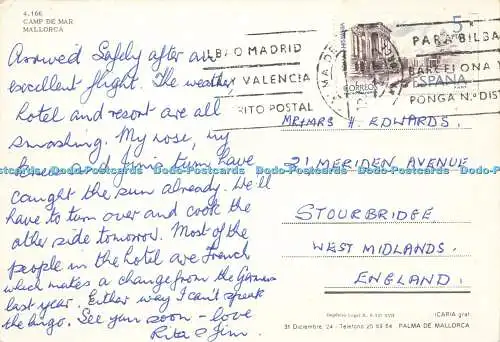 4.166
CAMP DE MAR
MALLORCA
Arrived safely after an
excellent flight. The weather,
hotel and resort are all
smashing. My nose, my
knees and Jim's tum have
caught the sun already. We'll
have to turn over and cook the
other side tomorrow. Most of the
people in the hotel are French
which makes a change from the Germans
last year. Either way I can't speak
the lingo. See you soon - love
Rita & Jim.
BILBAO MADRID
VALENCIA
DISTRITO POSTAL
PARA BILBAO
BARCELONA
PONGA N.º DIST
5
CORREOS
ESPAÑA
MR & MRS H. EDWARDS.
21 MERIDEN AVENUE
STOURBRIDGE
WEST MIDLANDS.
ENGLAND.
ICARIA graf
31 Diciembre, 24 - Teléfono 25 63 54 PALMA DE MALLORCA
Postcards
www.id-postcards.com